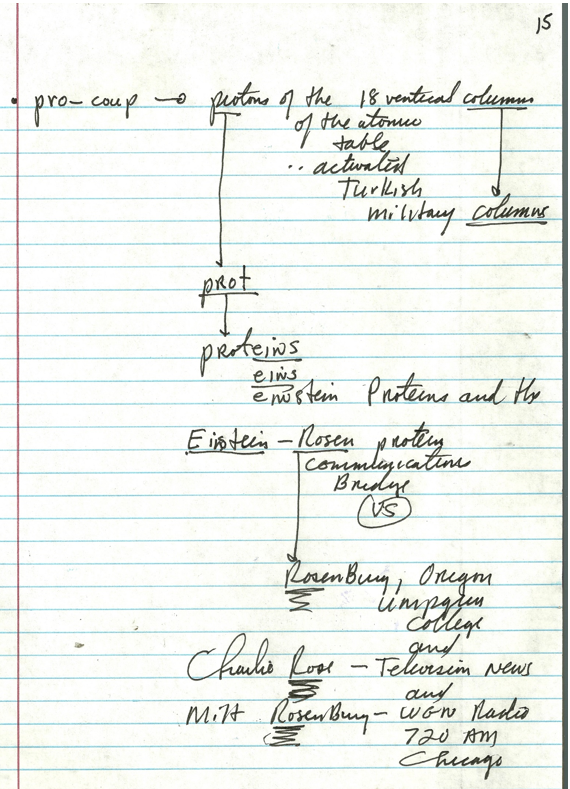 15
• pro-coup → protons of the 18 vertical columns
of the atomic
table
.. activated
Turkish
military columns
prot
proteins
eins
einstein Proteins and the
Einstein - Rosen protein
communications
Bridge
VS
RosenBurg, Oregon
Umpqua
college
and
Charlie Rose - Television News
and
Milt RosenBurg - WGN Radio
720 AM
Chicago